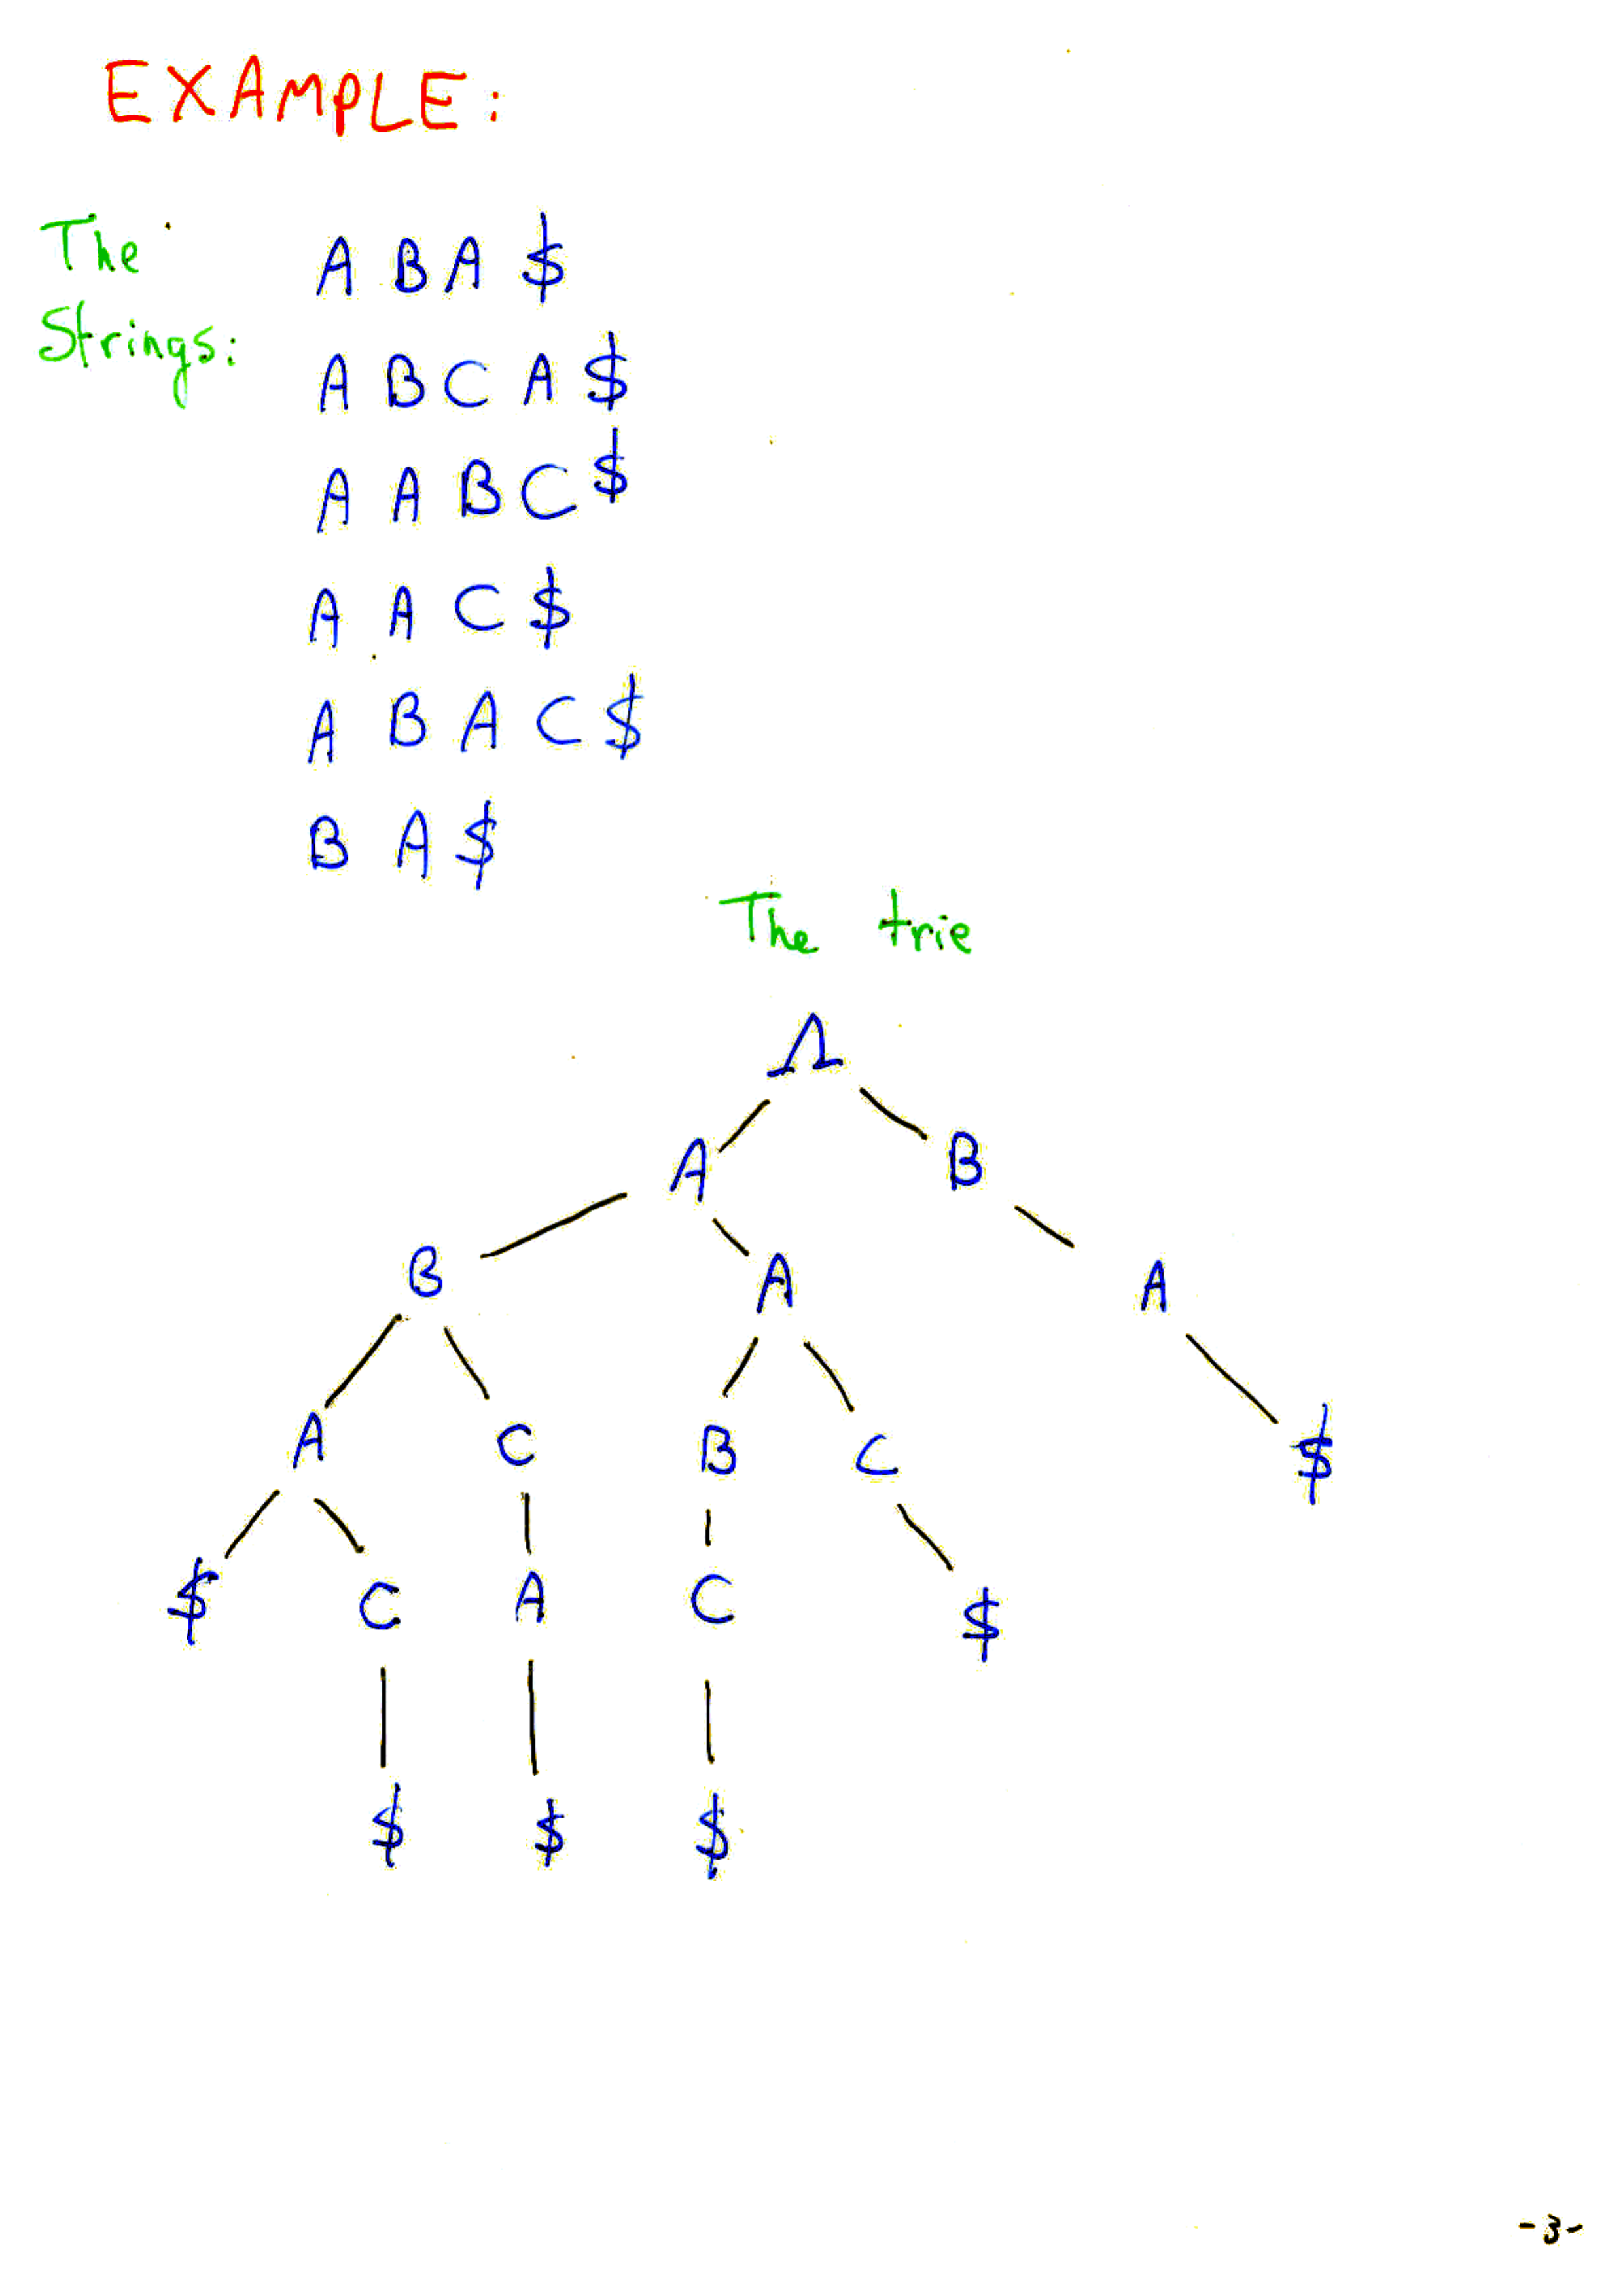 EXAMPLE:
The
Strings:
A B A $
A B C A $
A A B C $
A A C $
A B A C $
B A $
The trie
Λ
A B
B A A
A C B C $
$ C A C $
$ $ $
-3-